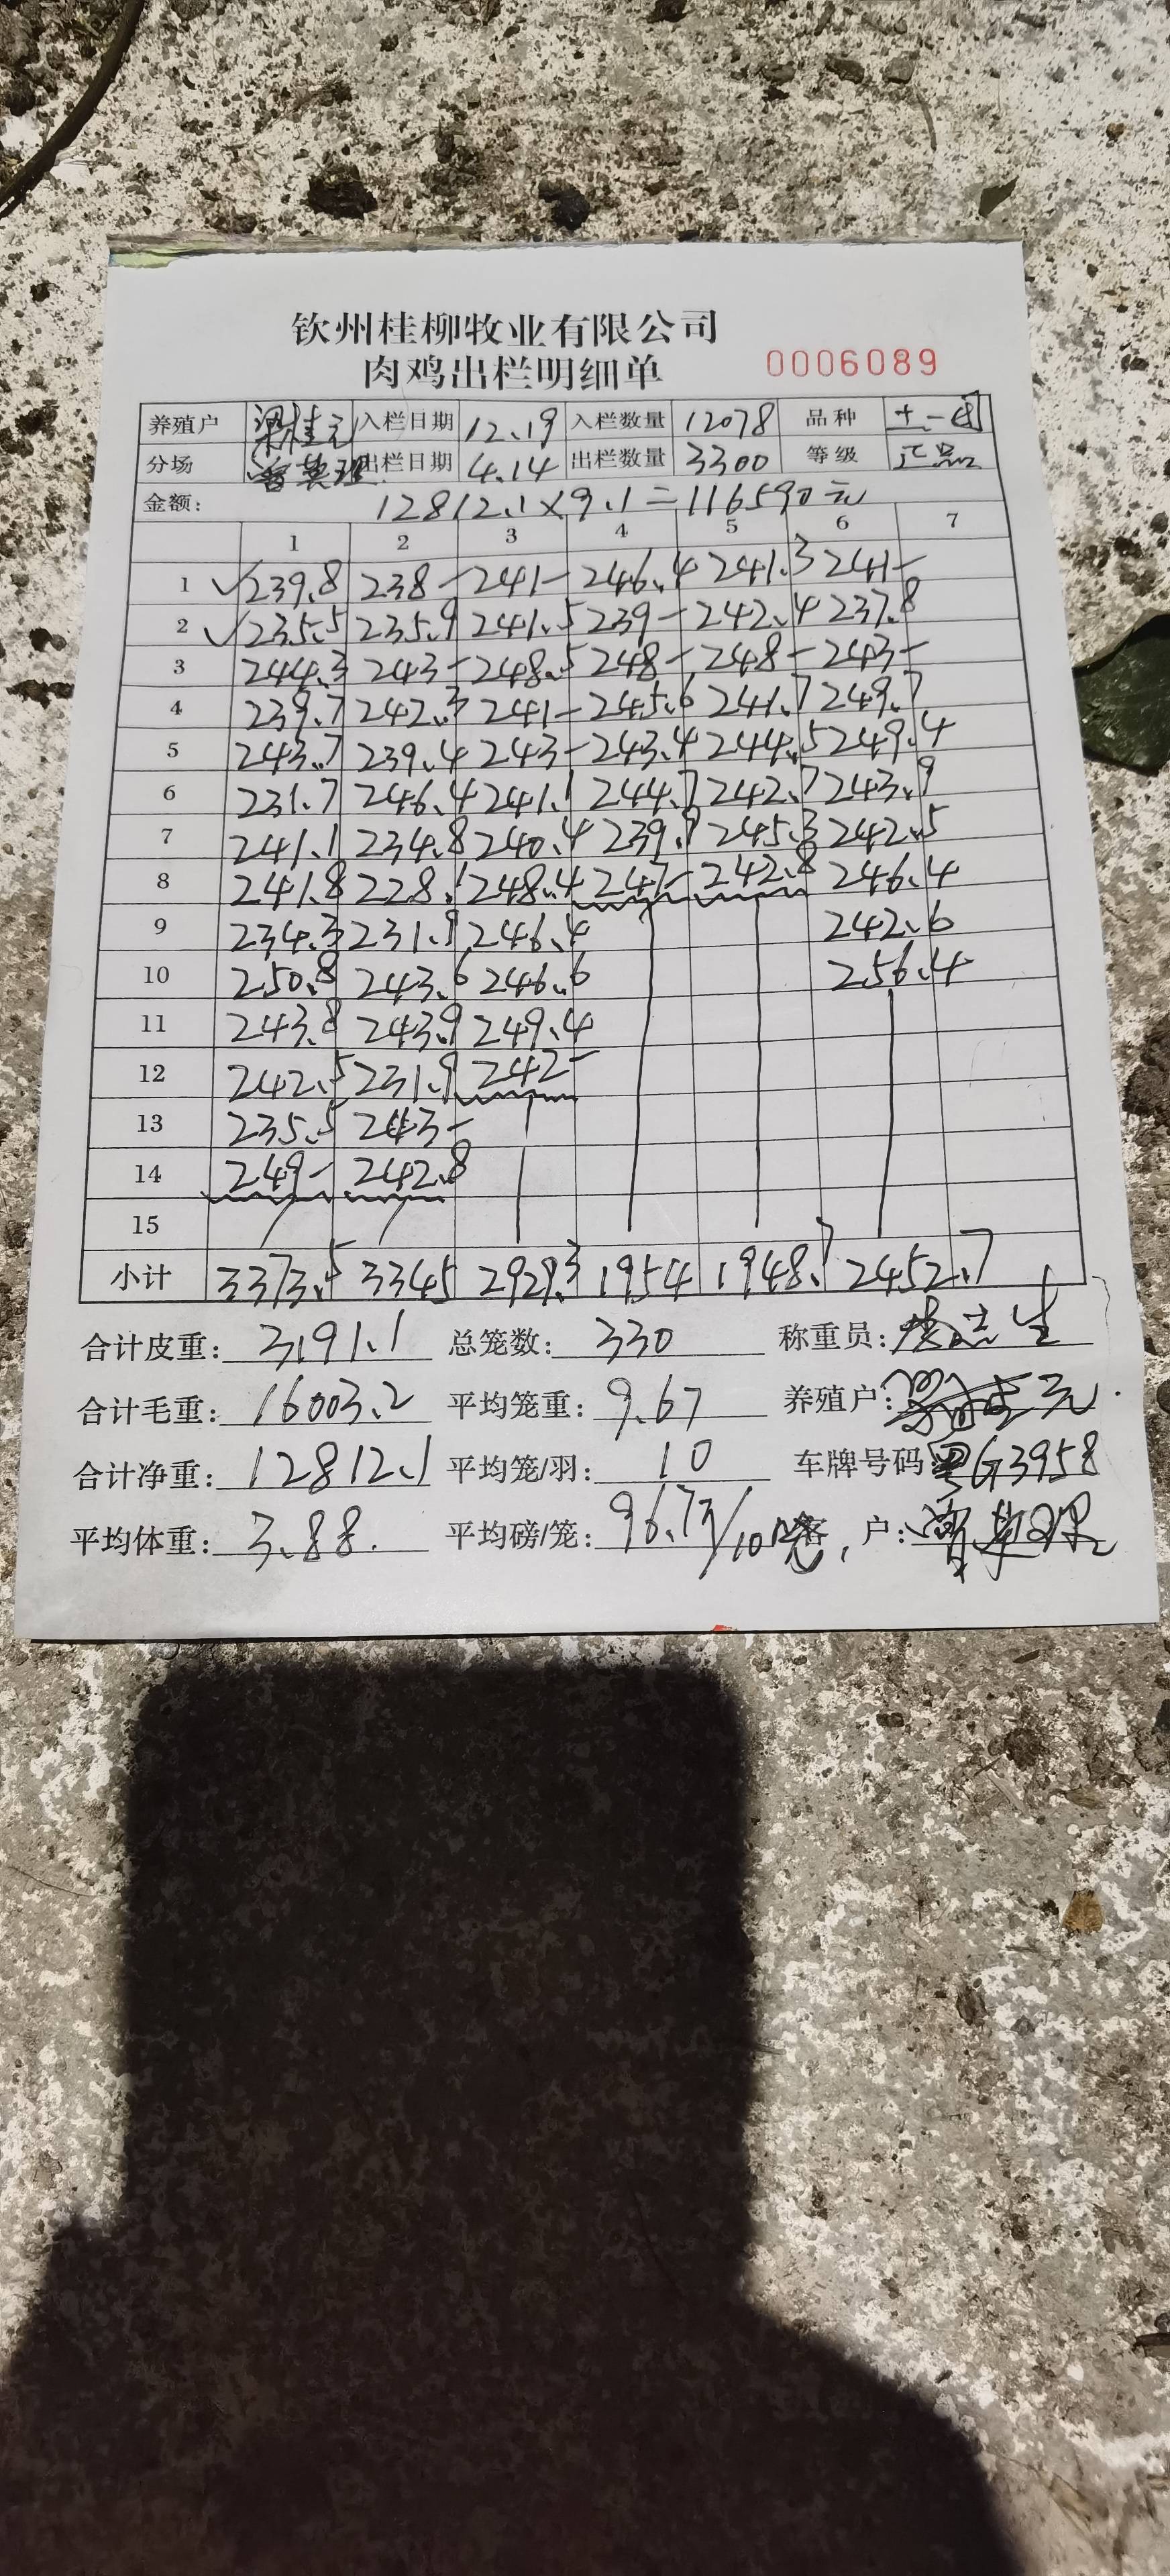 钦州桂柳牧业有限公司
肉鸡出栏明细单 0006089
养殖户 梁桂元 入栏日期 12.19 入栏数量 12078 品种 土一
分场 出栏日期 4.14 出栏数量 3300 等级 正品
金额: 12812.1×9.1=116590元
1 2 3 4 5 6 7
1 239.8 238- 241- 246.4 241.3 241-
2 235.5 235.9 241.5 239- 242.4 237.8
3 244.3 243- 248.5 248- 248- 243-
4 239.7 242.3 241- 245.6 241.7 249.7
5 243.7 239.4 243- 243.4 244.5 249.4
6 231.7 246.4 241.1 244.7 242.7 243.9
7 241.1 234.8 240.4 239.9 245.3 242.5
8 241.8 228.1 248.4 247- 242.8 246.4
9 234.3 231.9 246.4 242.6
10 250.8 243.6 246.6 256.4
11 243.8 243.9 249.4
12 242.5 231.9 242-
13 235.5 243-
14 249- 242.8
15
小计 3373.5 3345 2929.3 1954 1948.7 2452.7
合计皮重: 3191.1 总笼数: 330 称重员:
合计毛重: 16003.2 平均笼重: 9.67 养殖户: 梁桂元
合计净重: 12812.1 平均笼/羽: 10 车牌号码: 粤G3958
平均体重: 3.88. 平均磅/笼: 96.7 客户: